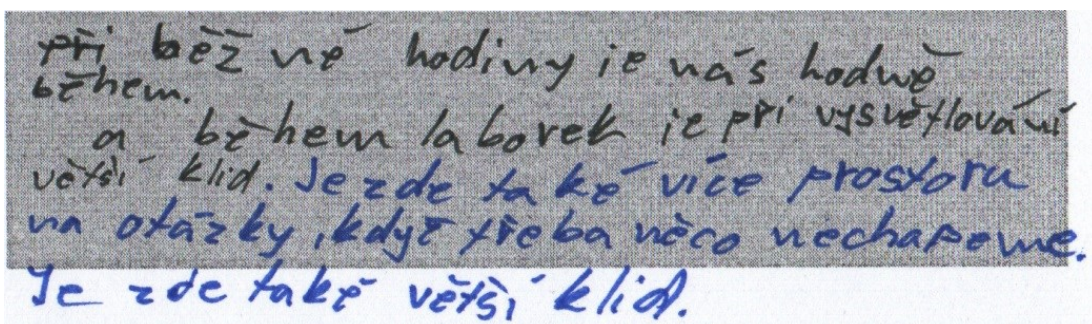 při běžné hodiny je nás hodně
během.
a během laborek je při vysvětlování
větší klid. Je zde také více prostoru
na otázky, když třeba něco nechapeme.
Je zde také větší klid.